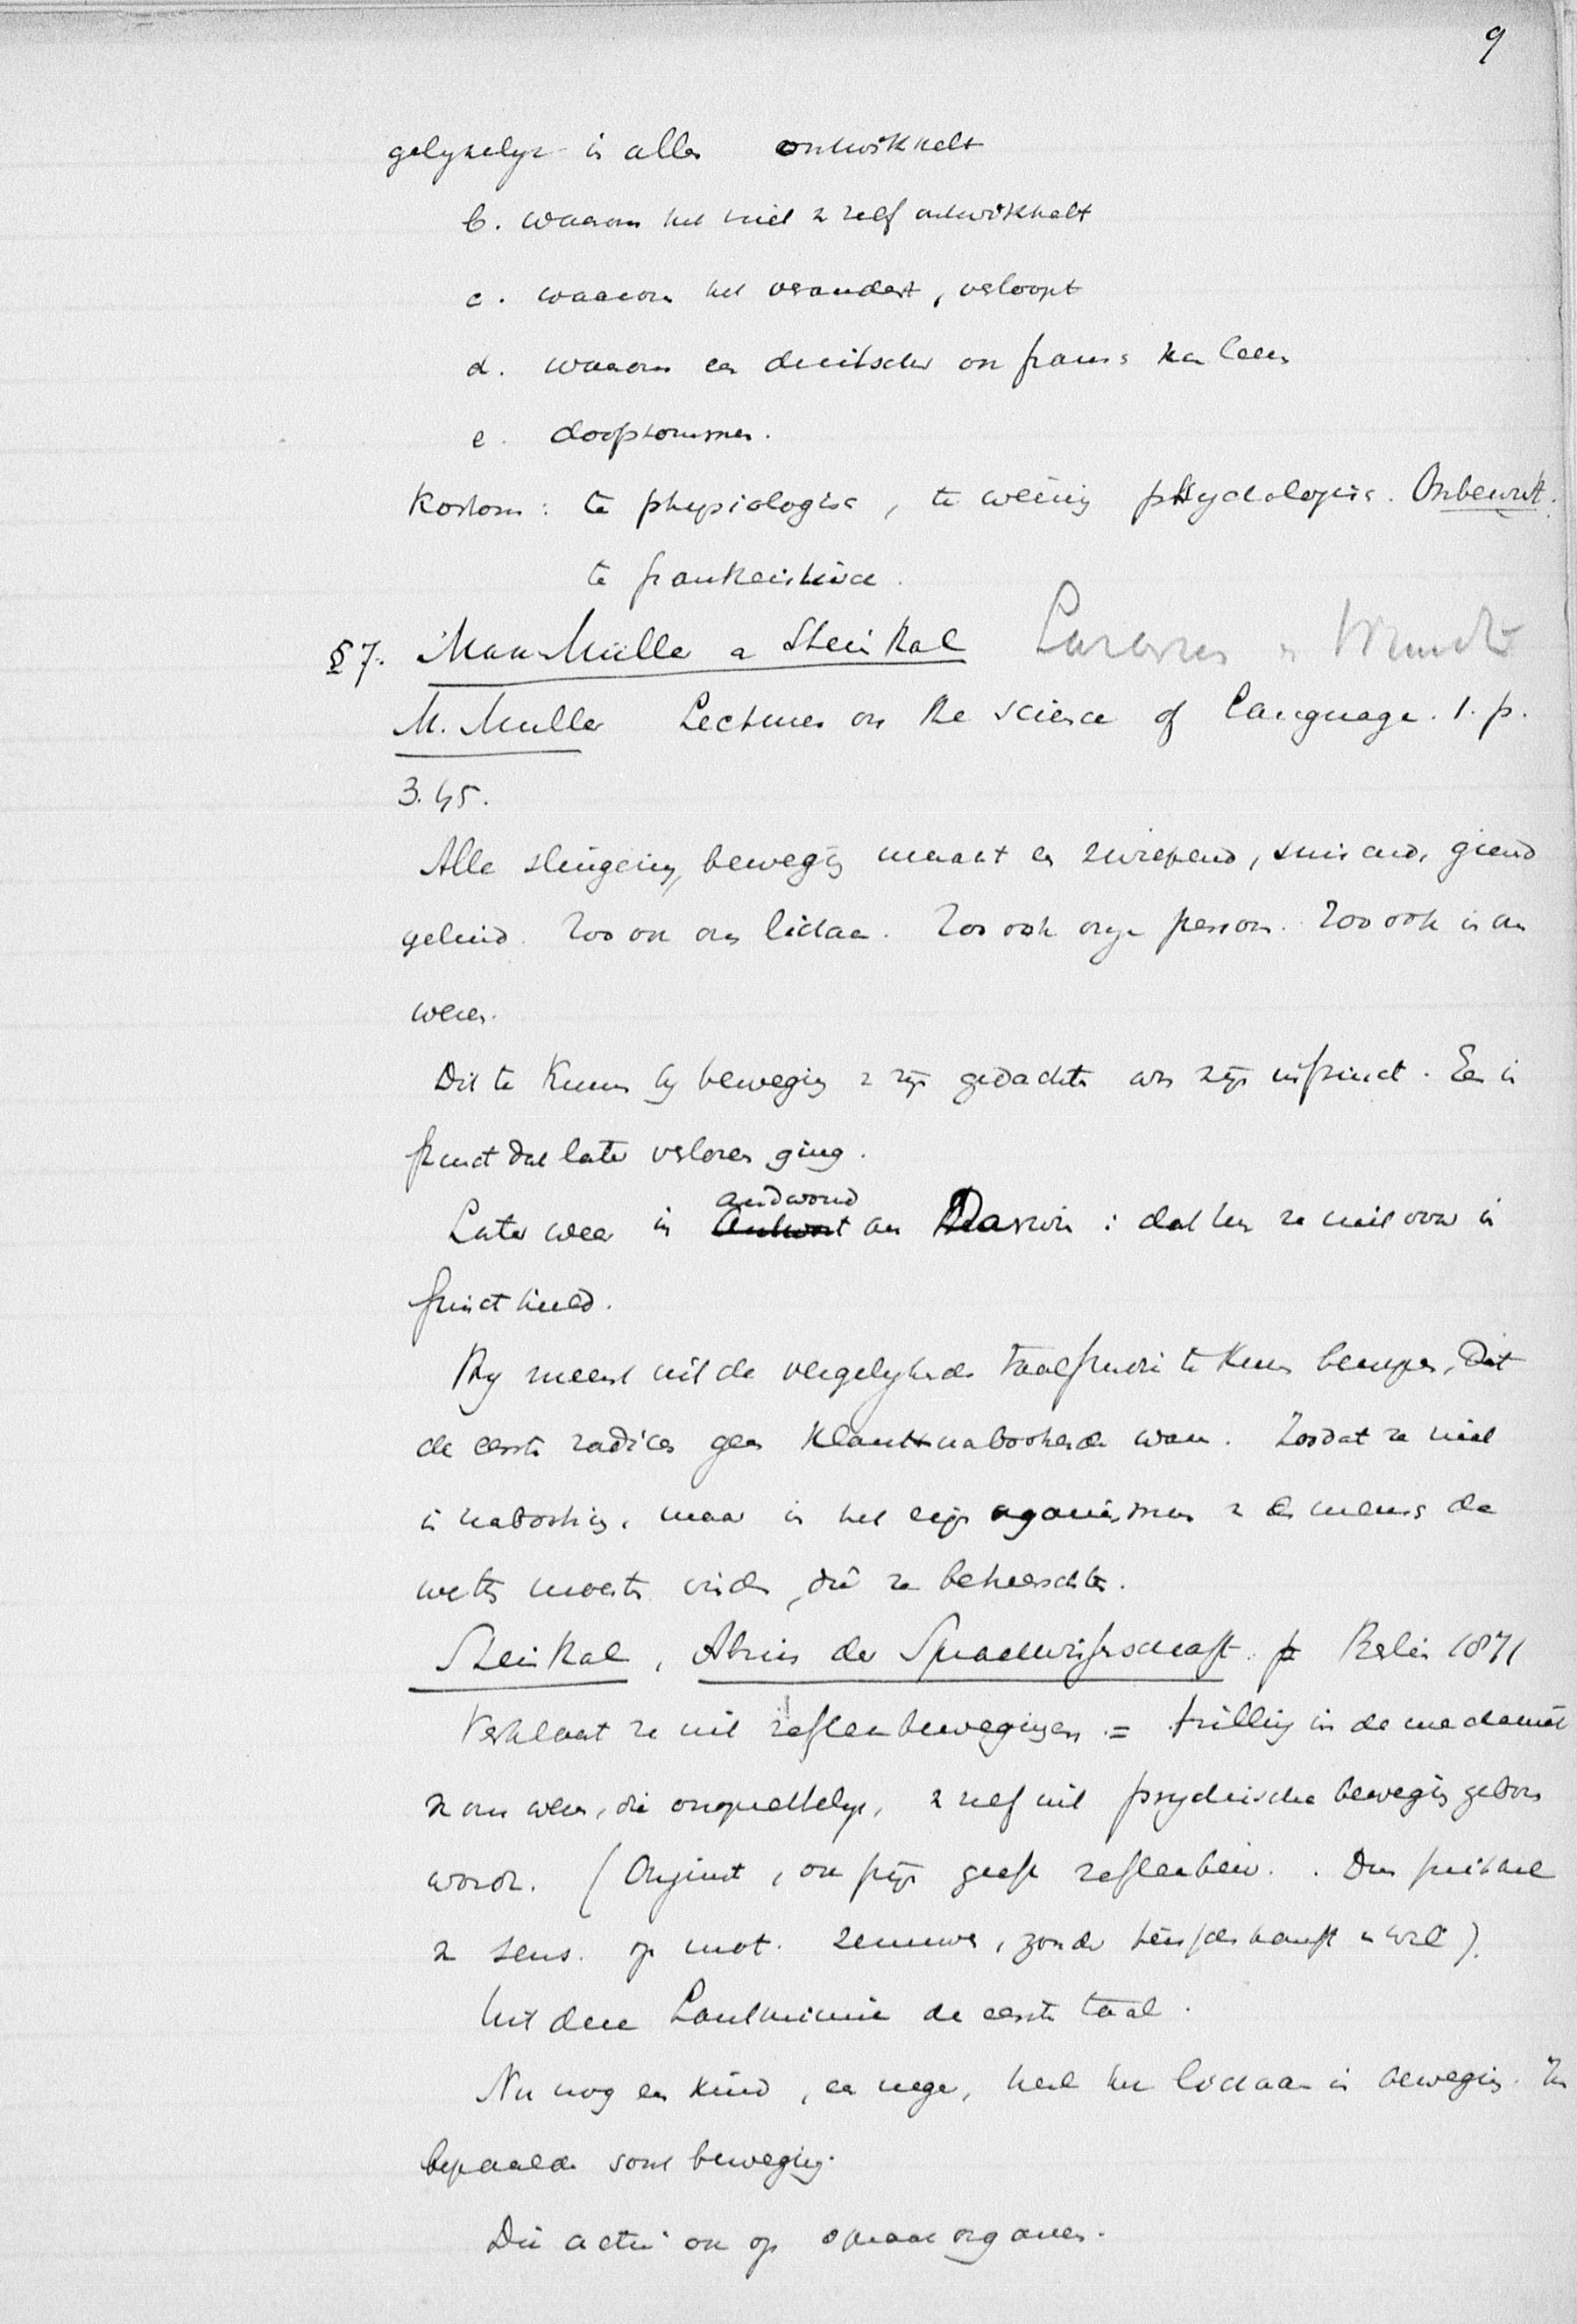 9
gelykelyk in allen ontwikkelt
b. waarom het niet v zelf ontwikkelt
c. waarom het verandert, verloopt
d. waarom een duitscher ook frans kan leeren
e. doofstommen.
Kortom: te physiologisch, te weinig psychologisch. Onbewust.
te
§7. Max Müller en Steinthal Lazarus en Wundt
M. Muller Lectures on the science of Language. 1. p.
3.45.
Alle slingering, bewegig maakt een zwiepend, suisend, gierend
geluid. Zoo ook ons lichaam. Zoo ook onze persoon. Zoo ook in ons
wezen.
Dit te kunnen by beweging v zyn gedachte was zyn instinct. Een in
stinct dat later verloren ging.
Later weer in andwoord aan Darwin: dat hy ze niet voor in
stinct hield.
Hy meent uit de vergelykende taalstudie te kunnen bewyzen, dat
de eerste radices geen klanknabootsende waren. Zoodat ze niet
in nabootsing, maar in het eige organismen v den mens de
wetten moesten vinden, die ze beheerschten.
Steinthal, Abriss der Sprachwissenschaft. p Berlin 1871
Verklaart ze uit reflexbewegingen = trilling in de
v ons wezen, die onopzettelyk, v zelf uit psychische beweging geboren
worden. ( ook geeft reflexbew.
v sens. op mot. zenuwen, zonder tusschenkomst v wil).
Uit deze Lautmimie de eerste taal.
Nu nog een kind, een neger, heel hun lichaam in beweging. In
bepaalde soort beweging.
Die actie ook op spraakorganen.